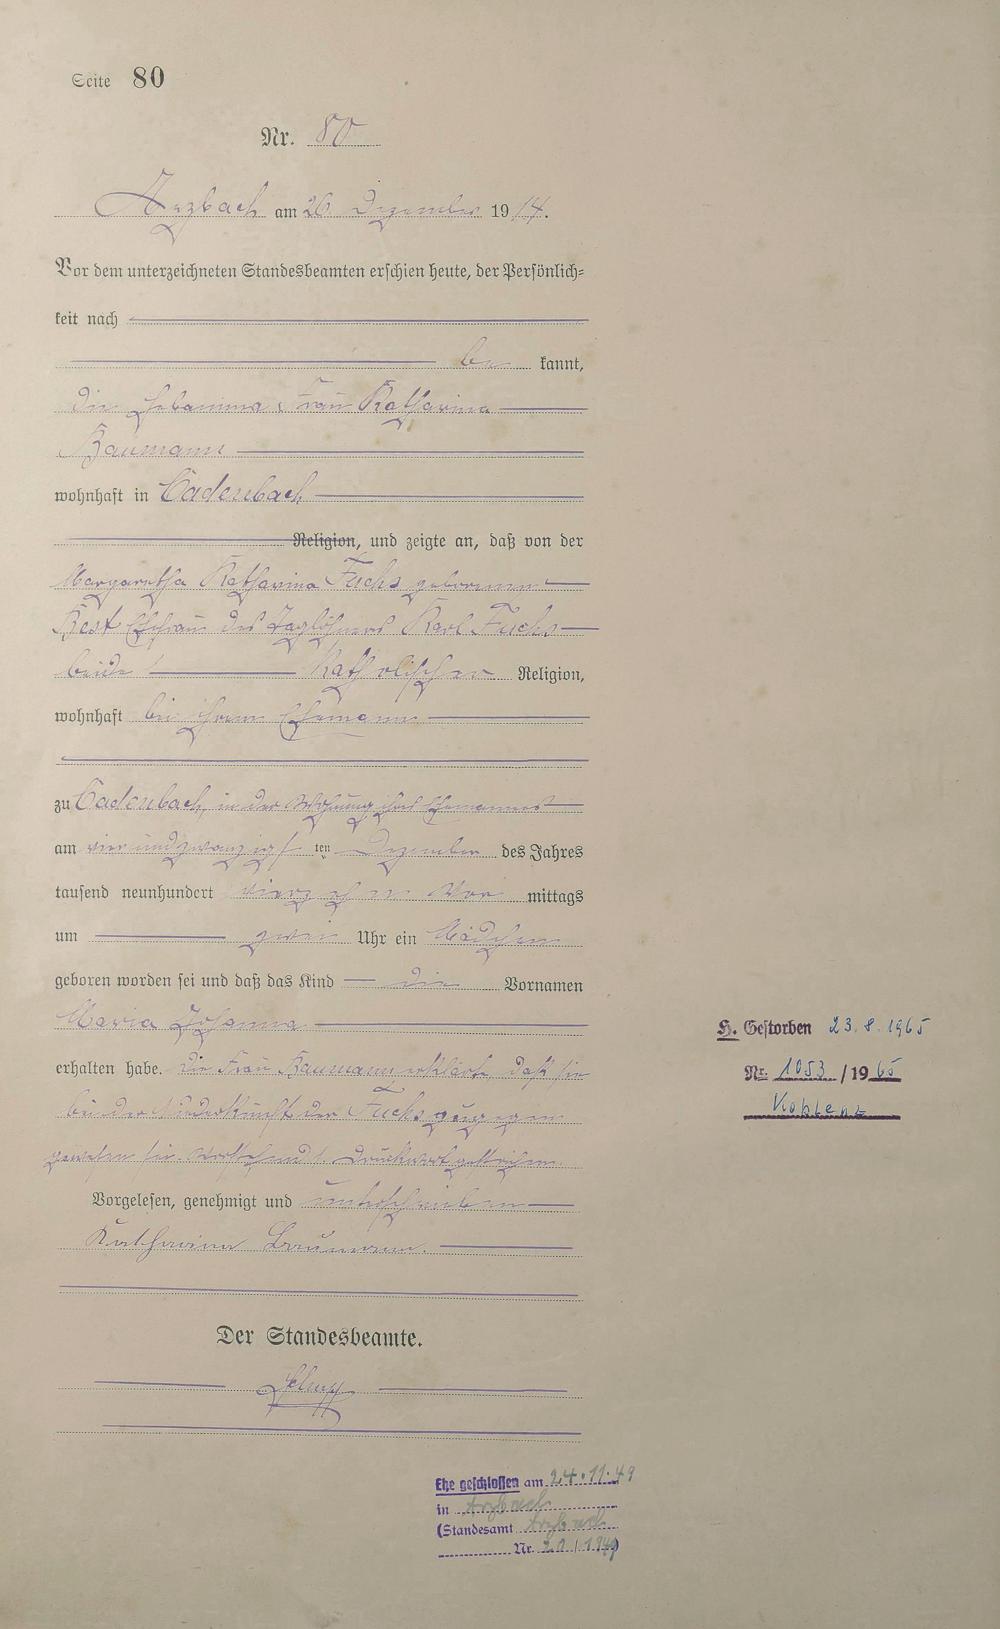 Seite 80
Nr. 80
Arzbach am 26 Dezember 1914.
Vor dem unterzeichneten Standesbeamten erschien heute, der Persönlich-
keit nach
be kannt,
die Hebamme, Frau Katharina
Baumann
wohnhaft in Cadenbach
Religion, und zeigte an, daß von der
Margaretha Katharina Fuchs geborenen
Best Ehefrau des Taglöhners Karl Fuchs
beide katholischer Religion,
wohnhaft bei ihrem Ehemann
zu Cadenbach, in der Wohnung ihres Ehemannes
am vier und zwanzigsten Dezember des Jahres
tausend neunhundert vierzehn Vor mittags
um zwei Uhr ein Mädchen
geboren worden sei und daß das Kind die Vornamen
Maria Johanna
erhalten habe. Die Frau Baumann erklärte, daß sie
bei der Niederkunft der Fuchs zugegen
gewesen sei. Vorstehend 1 Druckwort gestrichen.
Vorgelesen, genehmigt und unterschrieben
Katharina Baumann.
Der Standesbeamte.
H. Gestorben 23.8.1965
Nr. 1053/1965
Koblenz
Ehe geschlossen am 24.11.49
in Arzbach
(Standesamt Arzbach
Nr. 20/1949)